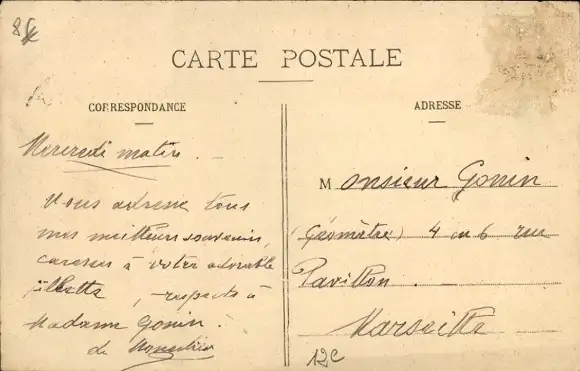 CARTE POSTALE
CORRESPONDANCE
Mercredi matin. —
Vous adresse tous
mes meilleurs souvenirs,
caresses à votre adorable
fillette, respects à
Madame Gonin.
de
ADRESSE
Monsieur Gonin
(Géomètre) 4 ou 6 rue
Pavillon.
Marseille
12€